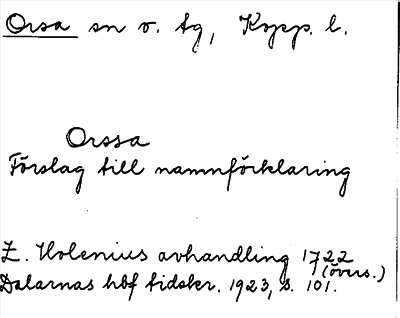 Orsa sn v. tg, Kopp. l.
Orssa
Förslag till namnförklaring
Z. Holenius avhandling 1722
(övers.)
Dalarnas hbf tidskr. 1923, s. 101.